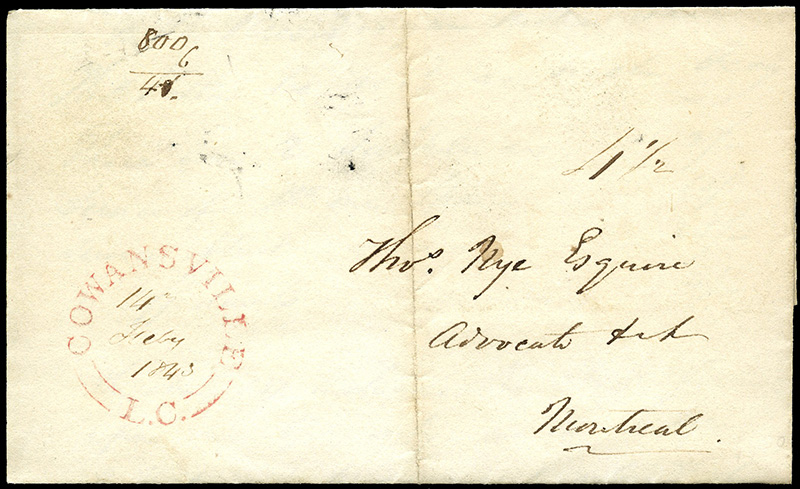 8006
48.
4 1/2
Thos. Nye Esquire
Advocate &c &c
Montreal.
COWANSVILLE
14
Feby
1843
L.C.